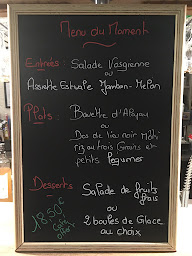 Menu du Moment
Entrées : Salade Vosgienne
ou
Assiette Estivale Jambon-Melon
Plats : Bavette d'Aloyau
ou
Dos de lieu noir
riz au trois Grains et
petits légumes
Desserts
Salade de fruits
frais
ou
2 boules de Glace
au choix
18.50€